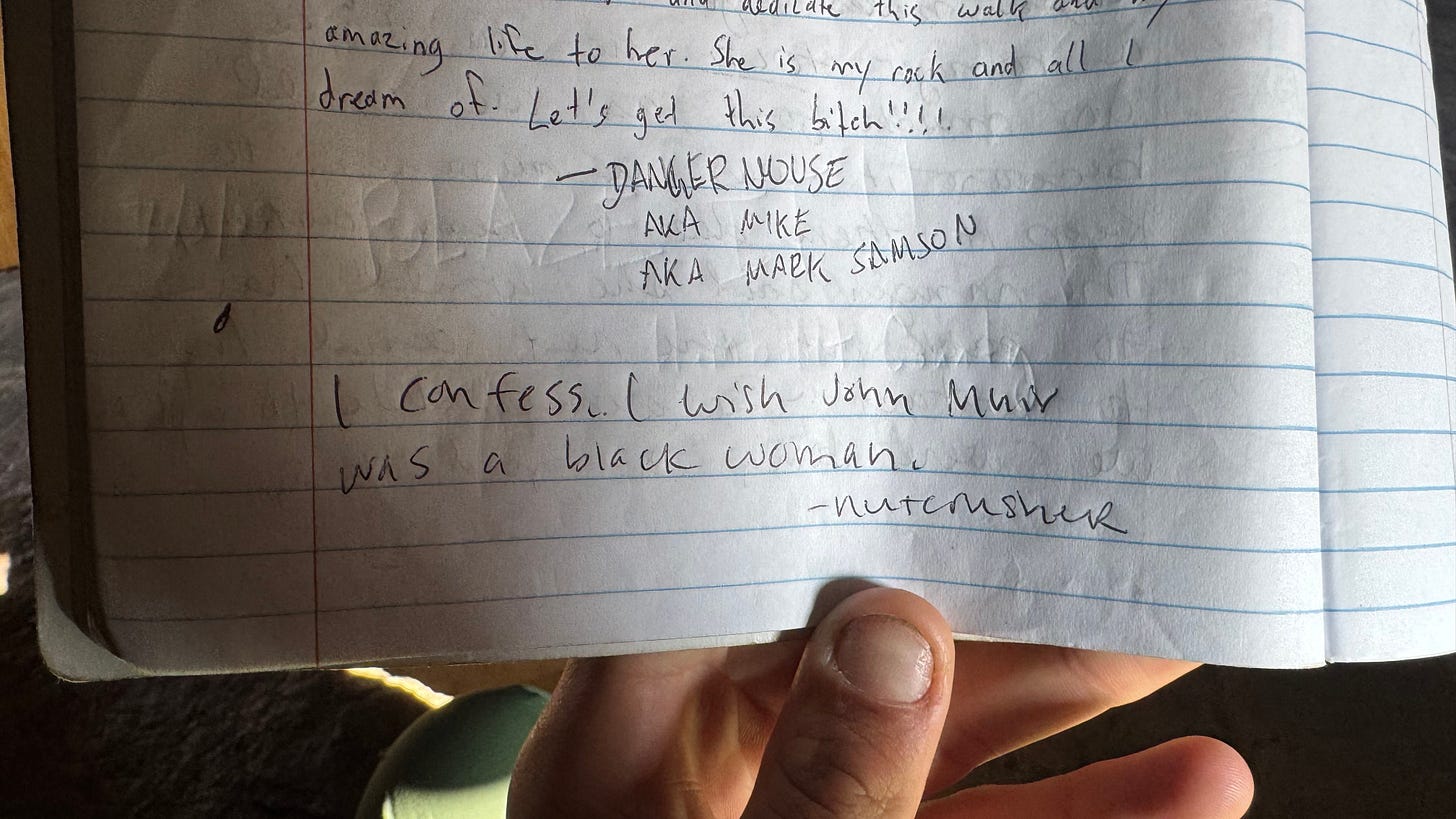 and dedicate this walk and my
amazing life to her. She is my rock and all I
dream of. Let's get this bitch!!!!
— DANGER MOUSE
AKA MIKE
AKA MARK SAMSON
I confess. I wish John Muir
was a black woman.
- nutcrusher